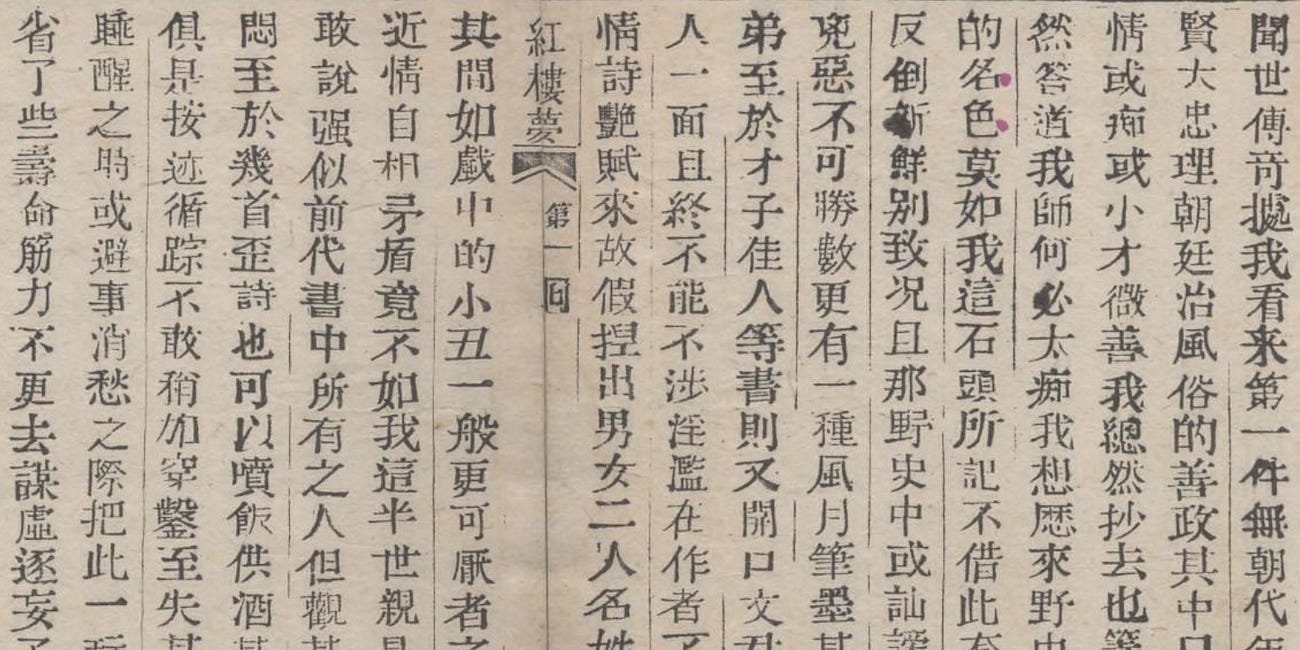 聞世傳奇㨿我看来第一件無朝代年
賢大忠理朝廷治風俗的善政其中只
情或痴或小才微善我總然抄去也算
然答道我師何必太痴我想歷來野史
的名色莫如我這石頭所記不借此套
反倒新鮮别致况且那野史中或訕謗
兇惡不可勝數更有一種風月筆墨其
弟至於才子佳人等書則又開口文君
人一面且終不能不涉淫濫在作者不
情詩艷賦來故假捏出男女二人名姓
紅樓夢 第一回
其間如戲中的小丑一般更可厭者之
近情自相矛盾竟不如我這半世親見
敢說强似前代書中所有之人但觀其
悶至於幾首歪詩也可以噴飯供酒其
俱是按迹循踪不敢稍加穿鑿至失其
睡醒之時或避事消愁之際把此一玩
省了些壽命筋力不更去謀虛逐妄了